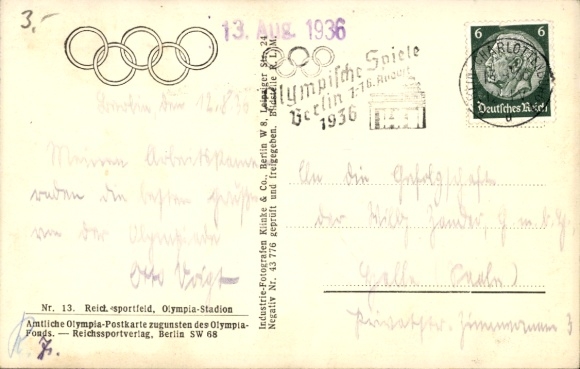 3.-
13. Aug. 1936
Olympische Spiele
Berlin 1-16. August
1936
6 6
Deutsches Reich
CHARLOTTENBURG
Berlin den 12.8.36
Meinen Arbeitskame
raden die besten Grüße
von der Olympiade
Otto Voigt
An die Gefolgschaft
der Willy Zander, G.m.b.H.
Halle (Saale)
Industrie-Fotografen Klinke & Co., Berlin W 8, Leipziger Str. 24
Negativ Nr. 43 776 geprüft und freigegeben. Bildstelle R. L. M.
Nr. 13. Reichssportfeld, Olympia-Stadion
Amtliche Olympia-Postkarte zugunsten des Olympia-
Fonds. — Reichssportverlag, Berlin SW 68